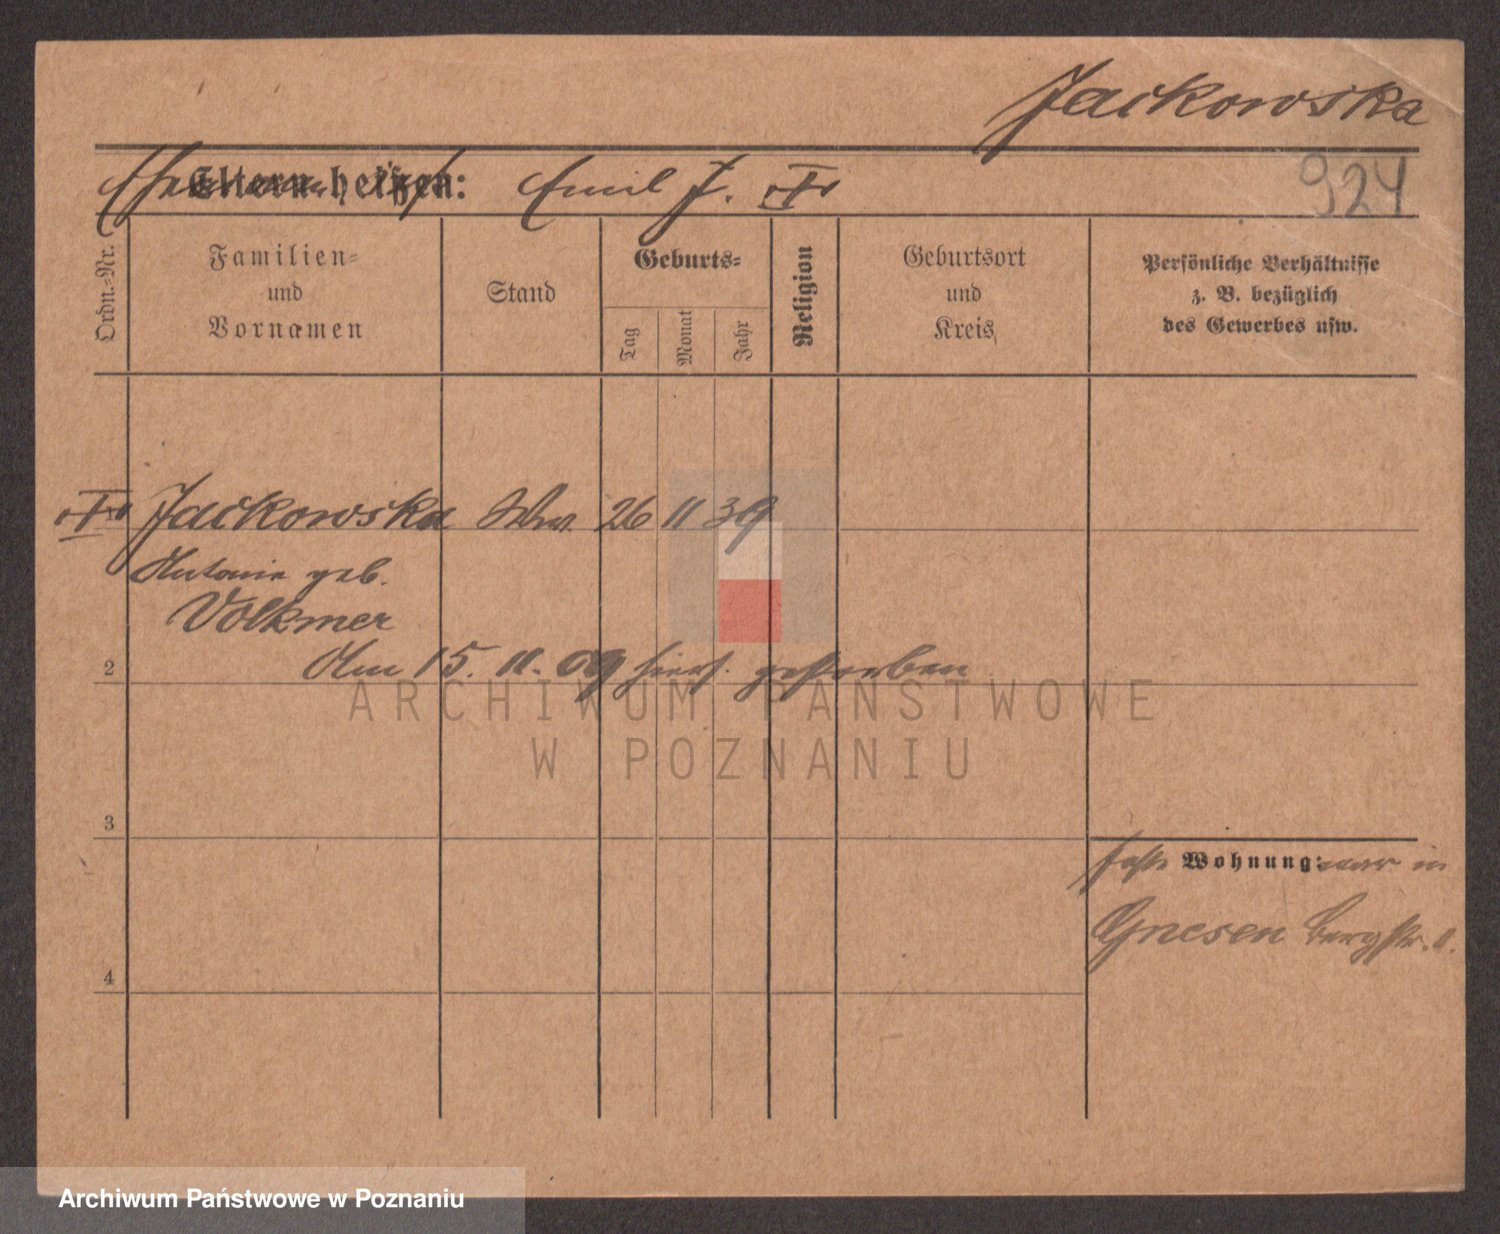 Jackowska
Eltern heißen: Emil J.
924
Ordn.-Nr.
Familien-
und
Vornamen
Stand
Geburts-
Tag
Monat
Jahr
Religion
Geburtsort
und
Kreis
Persönliche Verhältnisse
z. B. bezüglich
des Gewerbes usw.
Jackowska Ww. 26 11 39
Antonie geb.
Volkmer
2
Am 15. 11. 09 hiers. gestorben
ARCHIWUM PAŃSTWOWE
W POZNANIU
3
Wohnung: war in
Gnesen Bergstr.
4
Archiwum Państwowe w Poznaniu